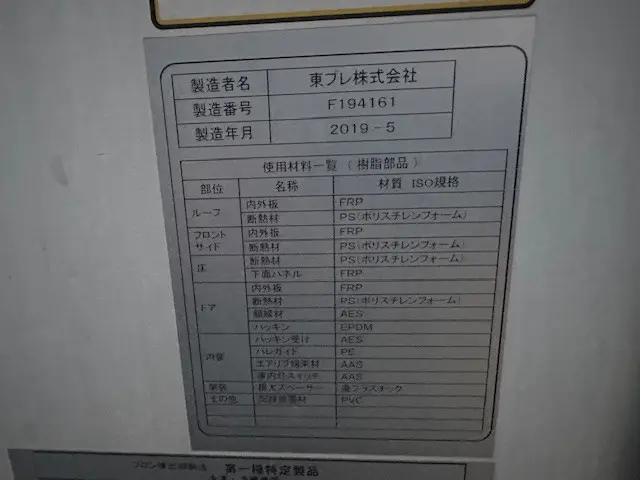 製造者名 東プレ株式会社
製造番号 F194161
製造年月 2019-5
使用材料一覧(樹脂部品)
部位 名称 材質 ISO規格
ルーフ 内外板 FRP
断熱材 PS(ポリスチレンフォーム)
フロント サイド 内外板 FRP
断熱材 PS(ポリスチレンフォーム)
断熱材 PS(ポリスチレンフォーム)
下面パネル FRP
ドア 内外板 FRP
断熱材 PS(ポリスチレンフォーム)
AES
パッキン EPDM
内装 パッキン受け AES
PE
エアリブ端末材 AAS
庫内灯スイッチ AAS
スペーサー 廃プラスチック
その他 PVC
第一種特定製品